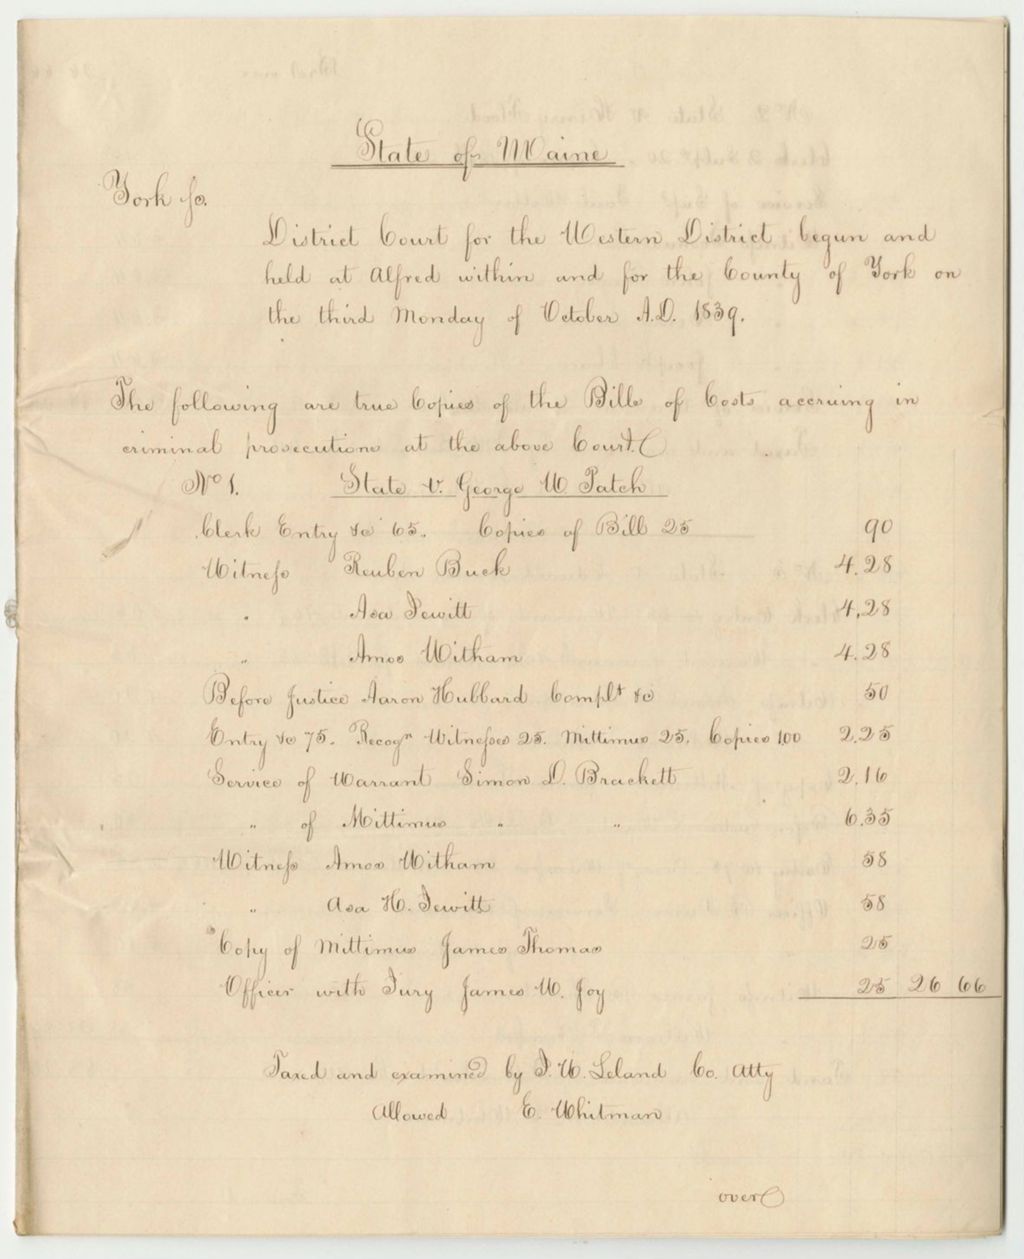 State of Maine
York ss.
District Court for the Western District begun and
held at Alfred within and for the County of York on
the third Monday of October A.D. 1839.
The following are true Copies of the Bills of Costs accruing in
criminal prosecutions at the above Court.
No 1. State v. George W Patch
Clerk Entry &c 65. Copies of Bill 25 90
Witness Reuben Buck 4.28
" Asa Jewitt 4.28
" Amos Witham 4.28
Before Justice Aaron Hubbard Complt &c 50
Entry &c 75. Recogn Witnesses 25. Mittimus 25. Copies 1.00 2.25
Service of Warrant Simon D. Brackett 2.16
" of Mittimus " " 6.35
Witness Amos Witham 58
" Asa H. Jewitt 58
Copy of Mittimus James Thomas 25
Officer with Jury James W. Joy 25 26 66
Taxed and examined by J. W. Leland Co. Atty
Allowed E. Whitman
over